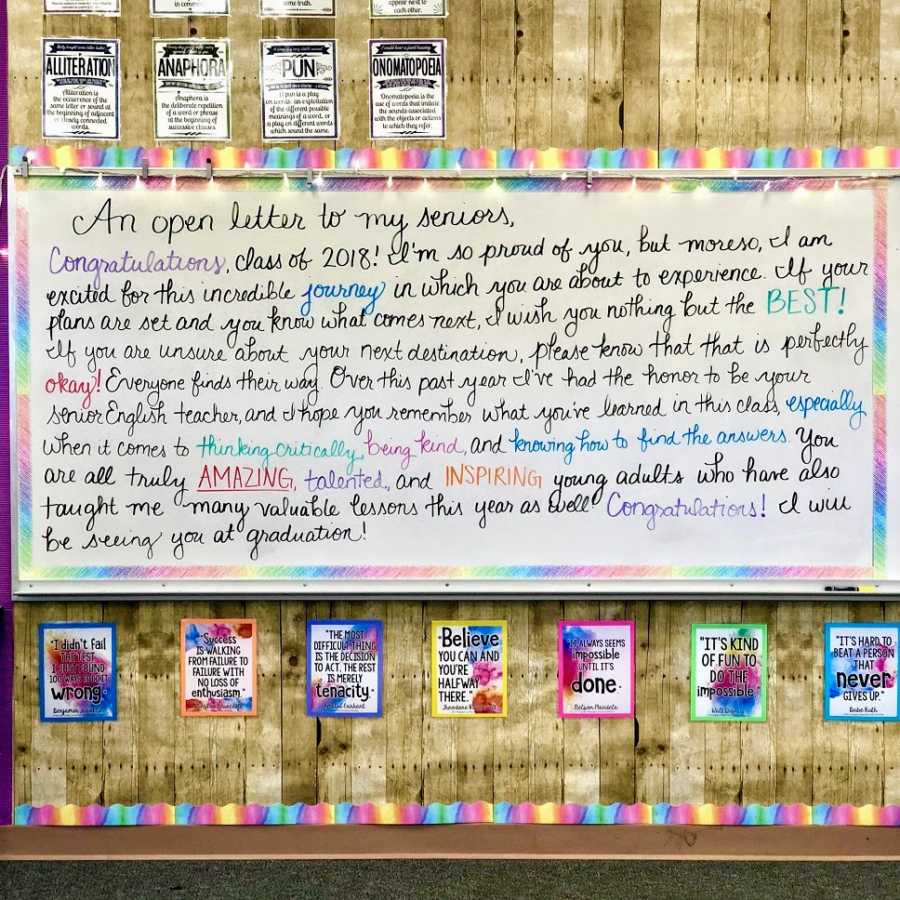 in common
same truth.
appear next to
each other.
ALLITERATION
Alliteration is
the occurrence of the
same letter or sound at
the beginning of adjacent
or closely connected
words.
ANAPHORA
Anaphora is
the deliberate repetition
of a word or phrase
at the beginning of
successive clauses
PUN
A pun is a play
on words: an exploitation
of the different possible
meanings of a word, or
a play on different words
which sound the same.
ONOMATOPOEIA
Onomatopoeia is the
use of words that imitate
the sounds associated
with the objects or actions
to which they refer.
An open letter to my seniors,
Congratulations, class of 2018! I'm so proud of you, but moreso, I am
excited for this incredible journey in which you are about to experience. If your
plans are set and you know what comes next, I wish you nothing but the BEST!
If you are unsure about your next destination, please know that that is perfectly
okay! Everyone finds their way. Over this past year I've had the honor to be your
senior English teacher, and I hope you remember what you've learned in this class, especially
when it comes to thinking critically, being kind, and knowing how to find the answers. You
are all truly AMAZING, talented, and INSPIRING young adults who have also
taught me many valuable lessons this year as well. Congratulations! I will
be seeing you at graduation!
"I didn't fail
THE TEST
wrong."
"Success
IS WALKING
FROM FAILURE TO
FAILURE WITH
NO LOSS OF
enthusiasm."
"THE MOST
DIFFICULT THING
IS THE DECISION
TO ACT, THE REST
IS MERELY
tenacity."
Amelia Earhart
"Believe
YOU CAN AND
YOU'RE
HALFWAY
THERE."
Theodore
"IT ALWAYS SEEMS
impossible
UNTIL IT'S
done."
Nelson Mandela
"IT'S KIND
OF FUN TO
DO THE
impossible."
Walt Disney
"IT'S HARD TO
BEAT A PERSON
THAT
never
GIVES UP."
Babe Ruth